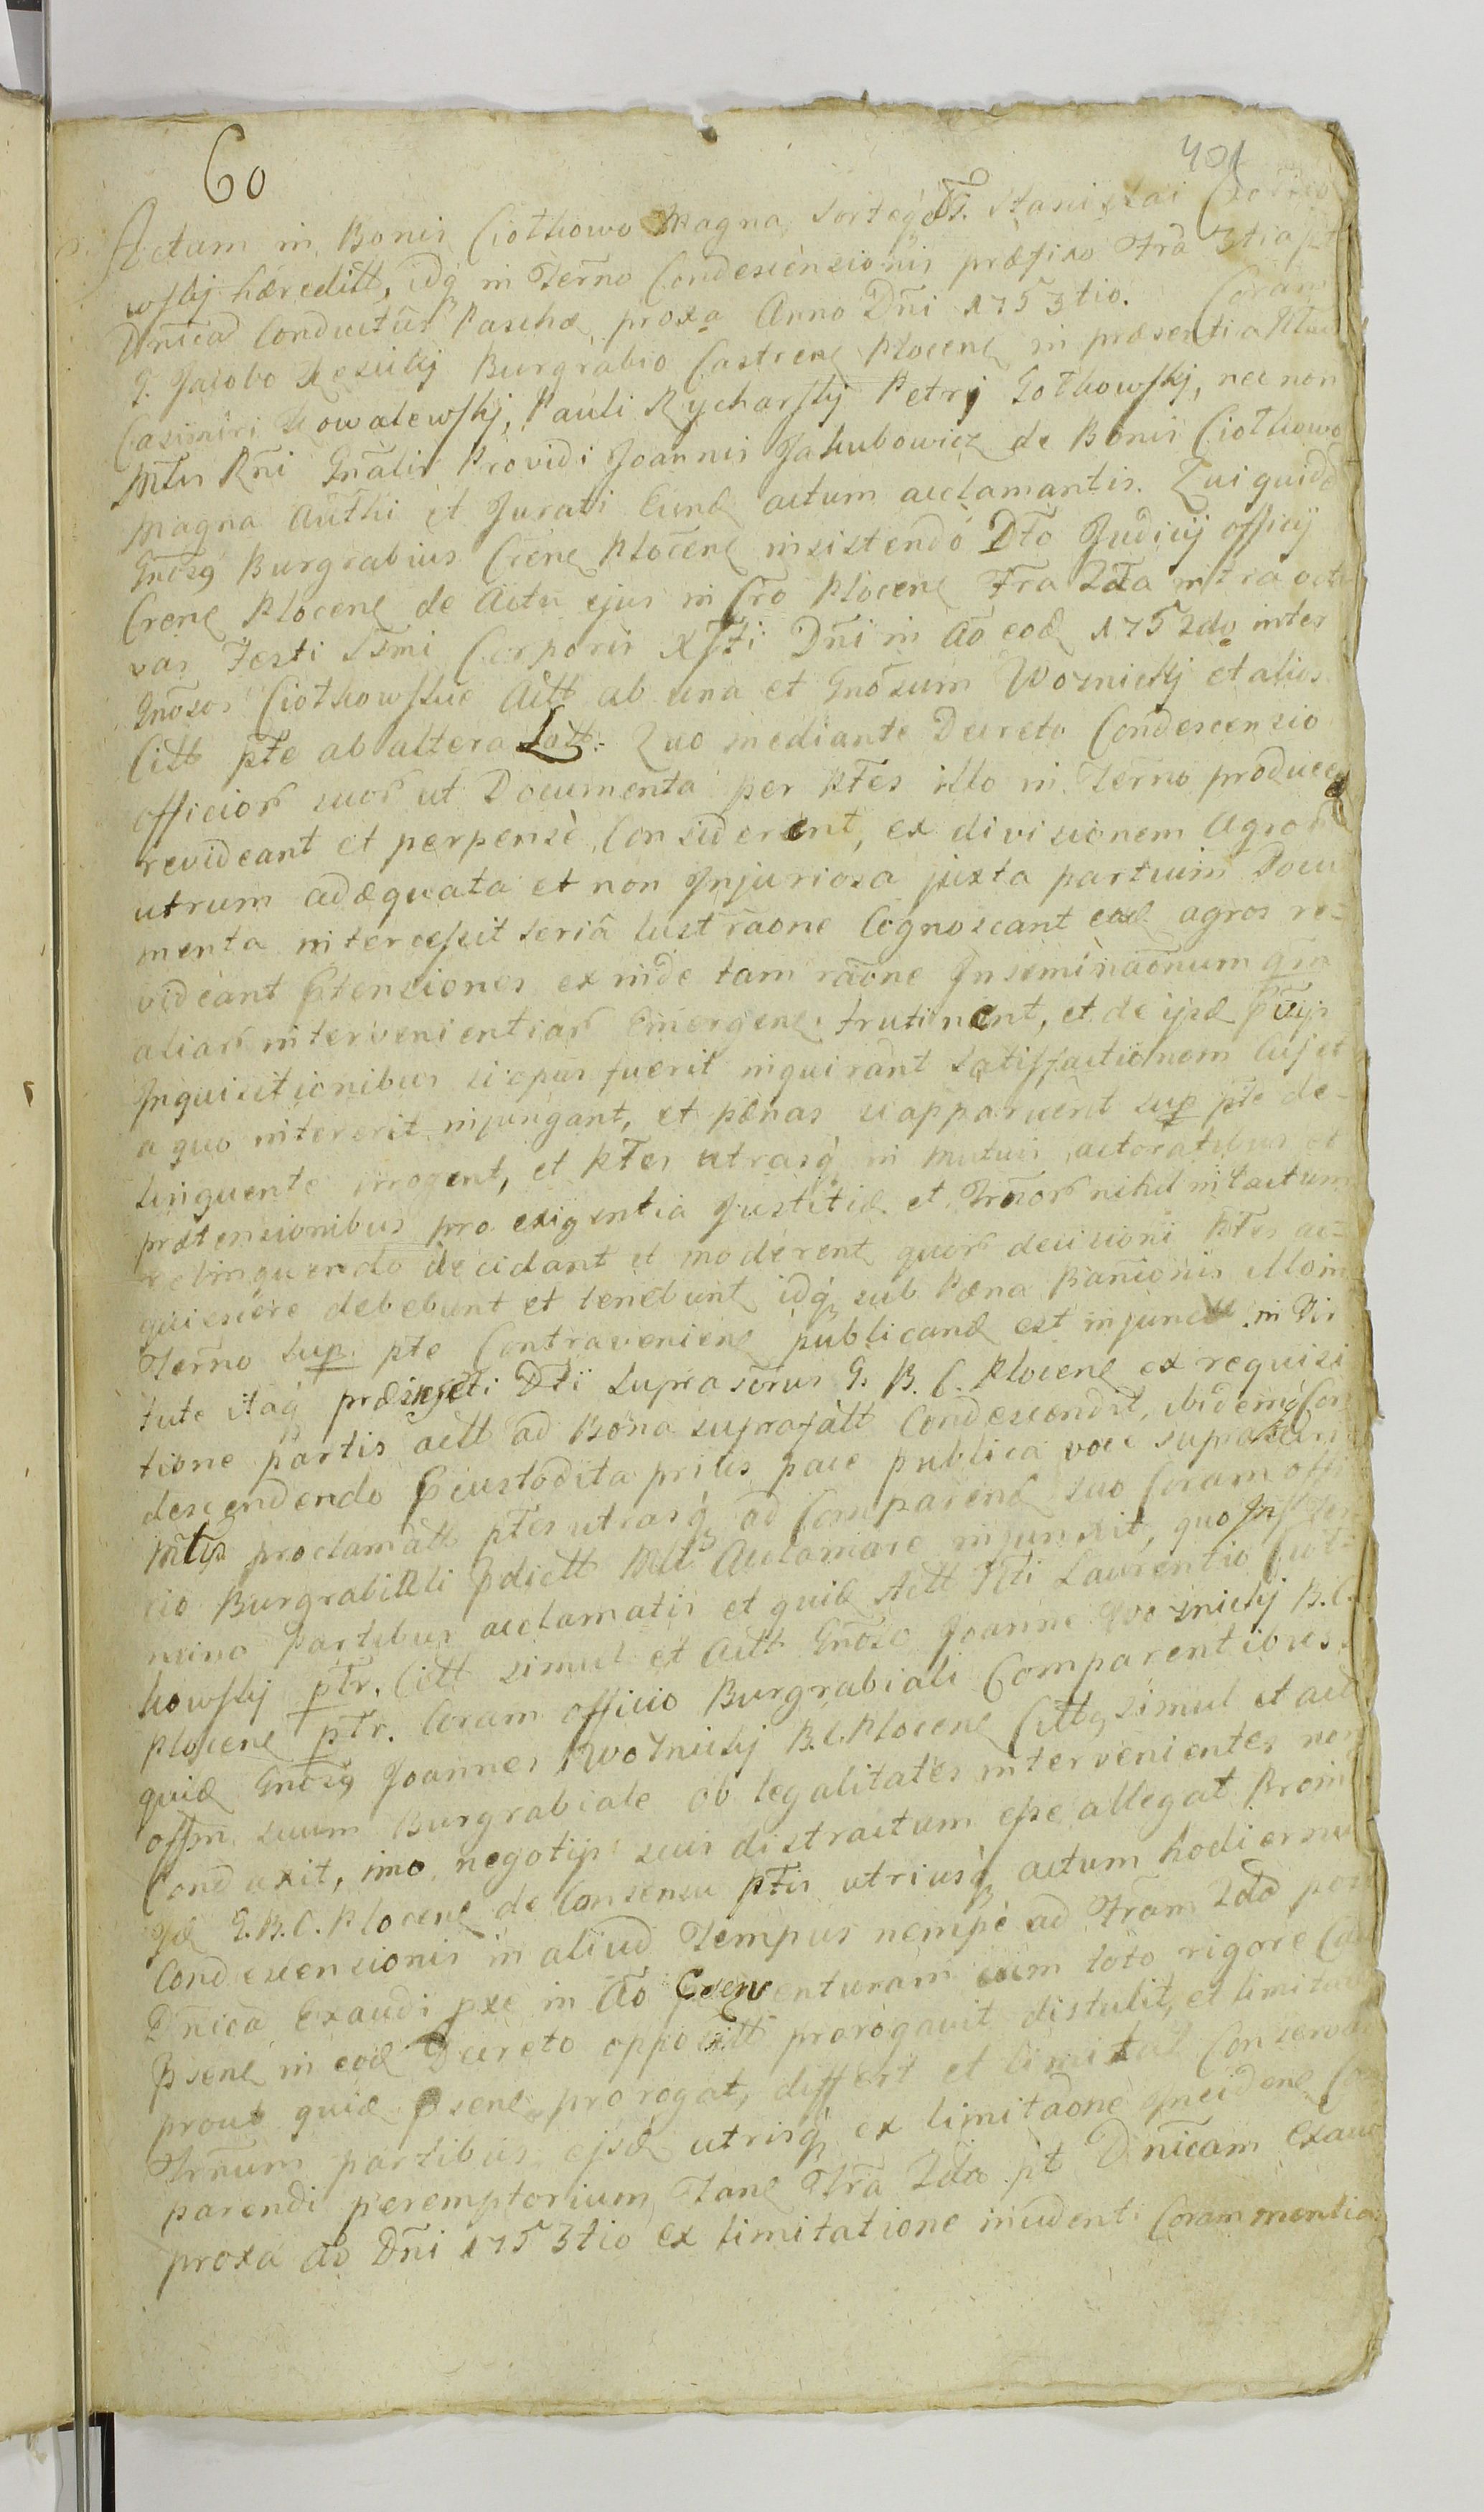 60
401
Actum in Bonis Ciothowo Magna, Sorteq̃ G. Stanislai
wskj hæreditt, idq̃ in Termo Condescensionis præfixo Fra 3tia pt
Dnicã Conductus Paschæ proxa Anno Dni 1753tio. Coram
G. Jacobo Burgrabio Castrens Plocens in præsentia
Casimiri Kowalewskj, Pauli Rycharskj Petrj Gothowskj, nec non
Mtris Rni Gnalis Providi Joannis Jakubowicz de Bonis Ciothowo
Magna Authi et Jurati Eund actum acclamantis. Qui quidẽ
Gnosq Burgrabius Crens Plocens insistendo Dto Judicij officij
Crens Plocens de Actu ejus in Cro Plocens Fra 2da intra octa
vas Festi SSmi Corporis Xsti Dni in Ao eod 1752do inter
Gnosos Ciothowskie Actt ab una et Gnosum Woznickj et alios
Citt pte ab altera Latt: Quo mediante Decreto Condescensio
officior suor ut Documenta per Ptes illo in Termo producen
revideant et perpense Considerent, ex divisionem Agror
utrum adæquata et non Injuriosa juxta partium Docu
menta intercessit seriâ lustraone Cognoscant eosd agros re=
videant Ptensiones exinde tam raone Inseminaonum qm
aliar intervenientiar Emergens trutinent, et de ipse pvijs
Inquisitionibus si opus fuerit inquirant Satisfactionem Cuj et
a quo intererit injungant, et pænas si apparuerit sup pte de-
linquente irrogent, et Ptes utrasq̃ in mutuis actoratibus et
prætensionibus pro exigentia Justitiæ et Jurior nihil intactum
relinquendo decidant et moderent quor decisioni Ptes ac=
quiescere debebunt et tenebunt idq̃ sub Pæna Banionis illo in
Termo sup pte Contraveniens publicand est injunctt in Vir
tute itaq̃ præinserti Dti Suprasõrus G. B. C. Plocens ex requisi
tione partis actt ad Bona suprafatt Condescendit, ibidemq̃ Con
descendendo Pcustodita prius pace publica voce suprascrip
Mtrjs proclamatt ptes utrasq̃ ad Comparend suo Coram offi
cio Burgrabiali pdictt Mtt Acclamare injunxit, quo Inst
mino Partibus acclamatis et quid Actt Ptti Laurentio Ciot=
howskj ptr. Citt simul et Actt Gnoso Joanne Woznickj B.C.
Plocens ptr. Coram officio Burgrabiali Comparentibus
quid Gnosq Joannes Woznickj B.C. Plocens Cittq simul et act
offm suum Burgrabiale ob legalitates intervenientes non
Conduxit, imo negotijs suis distractum esse allegat Proin
Id G. B. C. Plocens de Consensu Ptis utriusq̃ actum hodiernu
Condescensionis in aliud Tempus nempe ad Fram 2dã post
Dnicã Exaudi pxe in Ao pventuram cum toto rigore
psens in eod Decreto appositt prorogavit distulit, et limitavit
prout quid psens prorogat, differt et limitat Conservan
Trnum partibus ejsd utrisq̃ ex limitaone Incidens Com
parendi peremptorium Tane Fra 2da pt Dnicam Exau
proxa Ao Dni 1753tio ex limitatione incident Coram mentio